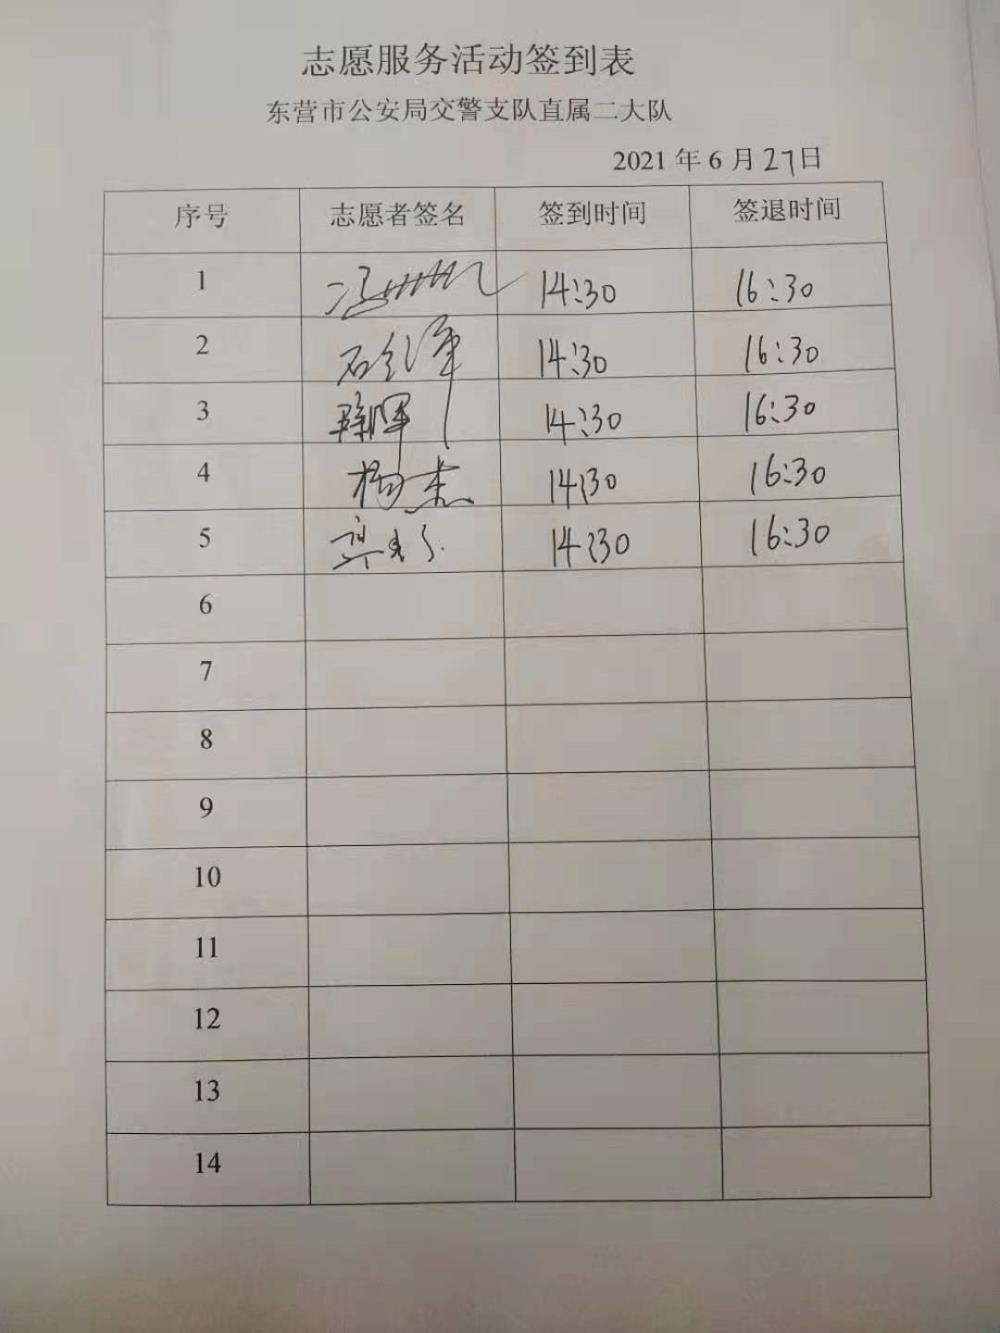 志愿服务活动签到表
东营市公安局交警支队直属二大队
2021 年 6 月 27 日
序号 志愿者签名 签到时间 签退时间
1 14:30 16:30
2 14:30 16:30
3 14:30 16:30
4 杨杰 14:30 16:30
5 14:30 16:30
6
7
8
9
10
11
12
13
14